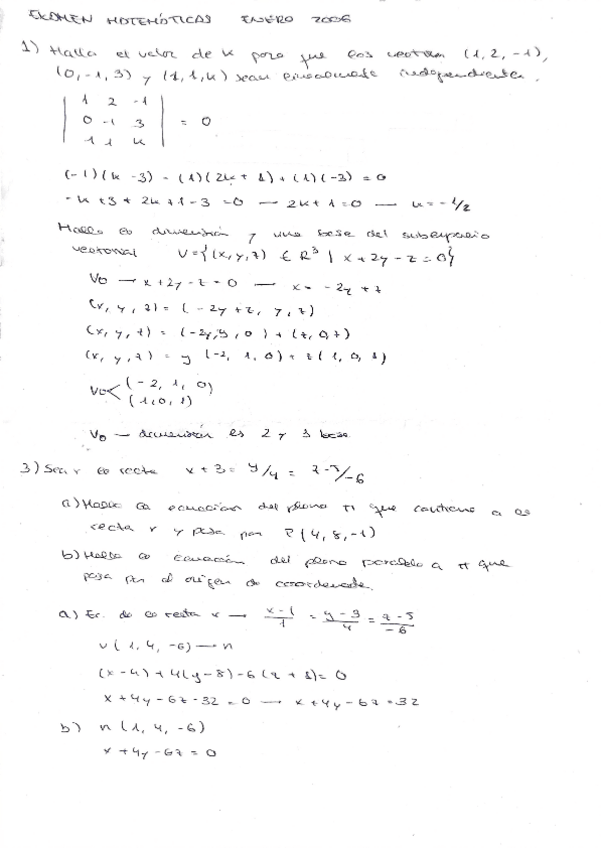 EXAMEN MATEMÁTICAS ENERO 2006
1) Halla el valor de k para que los vectores (1, 2, -1),
(0, -1, 3) y (1, 1, k) sean linealmente independientes.
| 1 2 -1 |
| 0 -1 3 | = 0
| 1 1 k |
(-1)(k -3) - (1)(2k + 1) + (1)(-3) = 0
-k +3 + 2k +1 -3 =0 — 2k +1 =0 — k = -1/2
Halla la dimensión y una base del subespacio
vectorial V = {(x, y, z) ∈ R³ | x + 2y - z = 0}
V₀ — x + 2y - z = 0 — x = -2y + z
(x, y, z) = (-2y + z, y, z)
(x, y, z) = (-2y, y, 0) + (z, 0, z)
(x, y, z) = y (-2, 1, 0) + z (1, 0, 1)
V₀ < (-2, 1, 0)
(1, 0, 1)
V₀ — dimensión es 2 y 3 base
3) Sea r la recta x + 3 = y/4 = z-5/-6
a) Halla la ecuación del plano π que contiene a la
recta r y pasa por P(4, 8, -1)
b) Halla la ecuación del plano paralelo a π que
pasa por el origen de coordenadas.
a) Ec. de la recta r — x-1/1 = y-3/4 = z-5/-6
v (1, 4, -6) — n
(x -4) + 4(y -8) -6(z + 1) = 0
x + 4y - 6z - 32 = 0 — x + 4y - 6z = 32
b) n (1, 4, -6)
x + 4y - 6z = 0